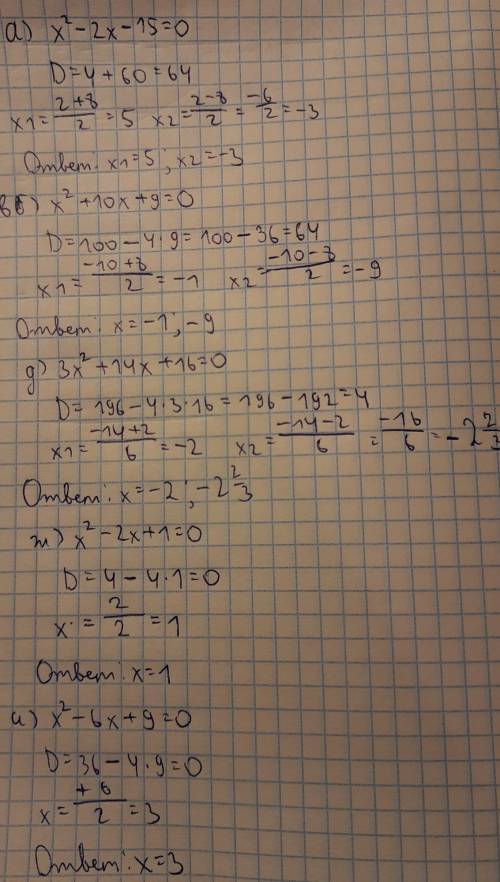 а) x² - 2x - 15 = 0
D = 4 + 60 = 64
x1 = (2+8)/2 = 5 x2 = (2-8)/2 = -6/2 = -3
Ответ: x1 = 5 ; x2 = -3
в б) x² + 10x + 9 = 0
D = 100 - 4·9 = 100 - 36 = 64
x1 = (-10+8)/2 = -1 x2 = (-10-8)/2 = -9
Ответ: x = -1 ; -9
д) 3x² + 14x + 16 = 0
D = 196 - 4·3·16 = 196 - 192 = 4
x1 = (-14+2)/6 = -2 x2 = (-14-2)/6 = -16/6 = -2 2/3
Ответ: x = -2 ; -2 2/3
ж) x² - 2x + 1 = 0
D = 4 - 4·1 = 0
x = 2/2 = 1
Ответ: x = 1
и) x² - 6x + 9 = 0
D = 36 - 4·9 = 0
x = +6/2 = 3
Ответ: x = 3